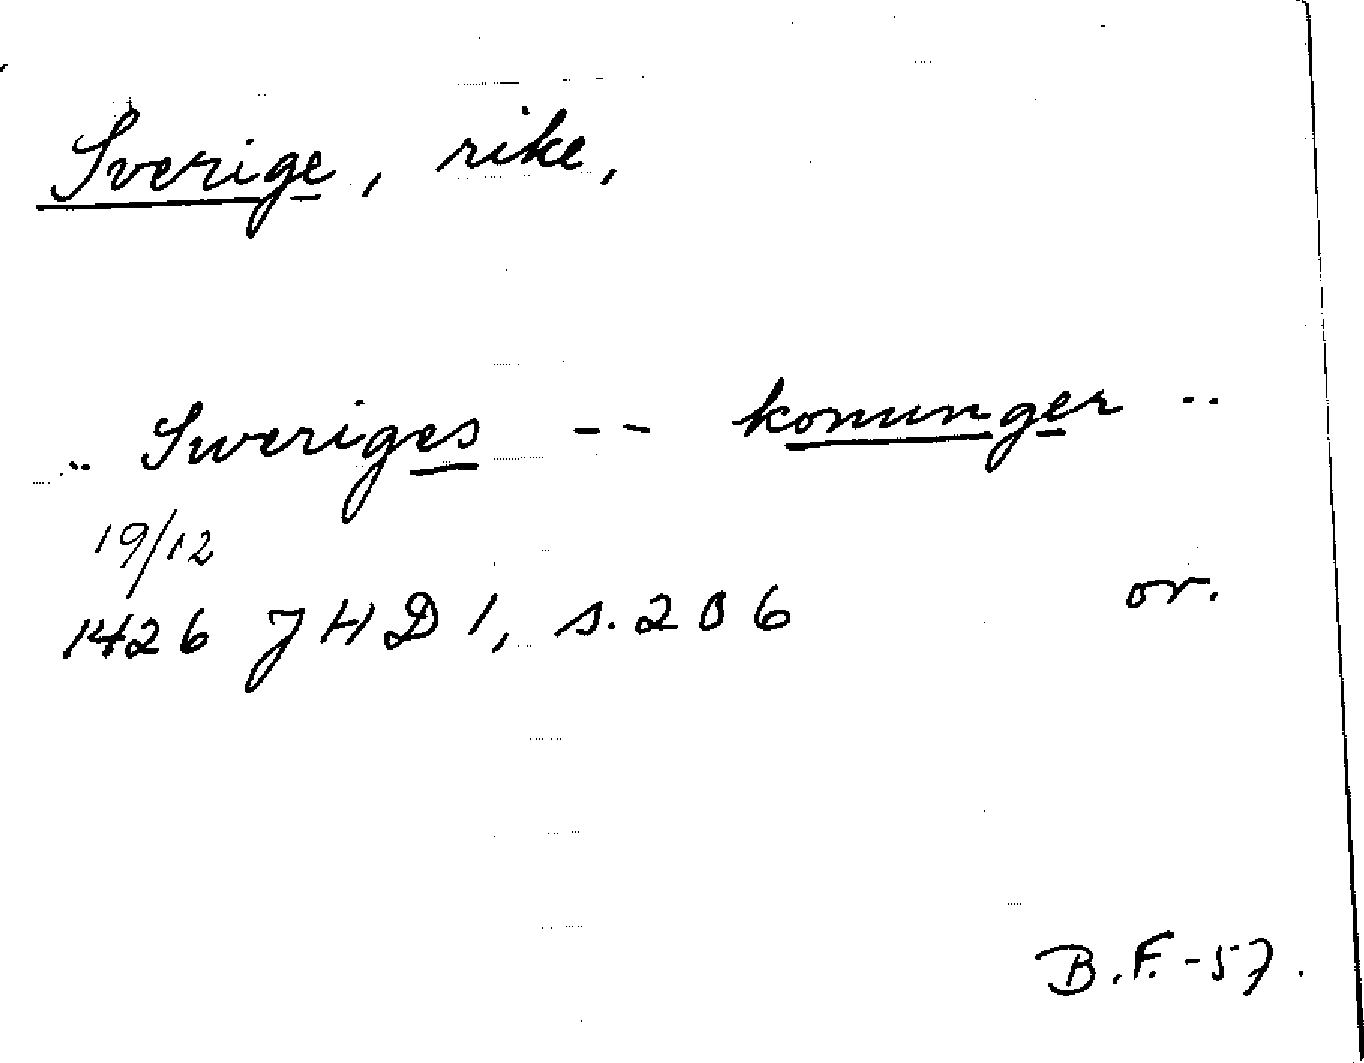 Sverige, rike,
.. Sweriges -- konunger ..
19/12
1426 JHD 1, s. 206 or.
B.F. -57.